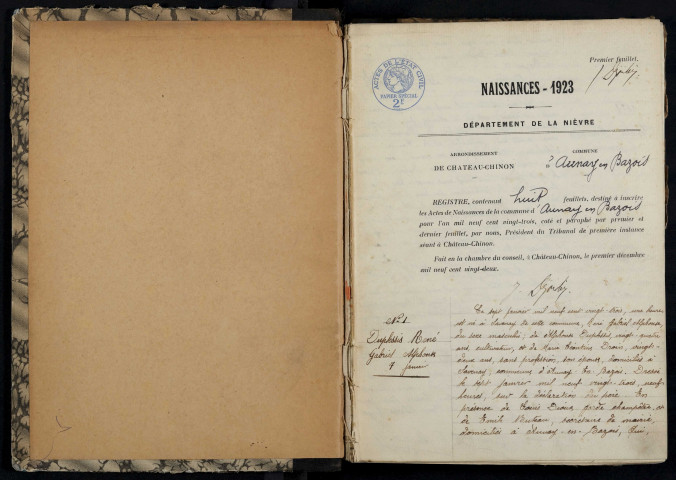 Premier feuillet.
ACTES DE L'ETAT CIVIL
PAPIER SPECIAL
2F
NAISSANCES - 1923
DÉPARTEMENT DE LA NIÈVRE
ARRONDISSEMENT
DE CHATEAU-CHINON
COMMUNE
d'Aunay en Bazois
REGISTRE, contenant huit feuillets, destiné à inscrire
les Actes de Naissances de la commune d'Aunay en Bazois
pour l'an mil neuf cent vingt-trois, coté et paraphé par premier et
dernier feuillet, par nous, Président du Tribunal de première instance
séant à Château-Chinon.
Fait en la chambre du conseil, à Château-Chinon, le premier décembre
mil neuf cent vingt-deux.
N° 1
Duplessis René
Gabriel Alphonse
7 janvier
Le sept janvier mil neuf cent vingt trois, une heure
est né à Savenay de cette commune, René Gabriel Alphonse,
du sexe masculin, de Alphonse Duplessis, vingt-quatre
ans, cultivateur, et de Marie Drouin, vingt-
deux ans, sans profession, son épouse, domiciliés à
Savenay, commune d'Aunay en Bazois. Dressé
le sept janvier mil neuf vingt-trois, neuf
heures, sur la déclaration du père. En
présence de Louis garde champêtre, et
de Emile secrétaire de mairie,
domiciliés à Aunay-en-Bazois, qui,